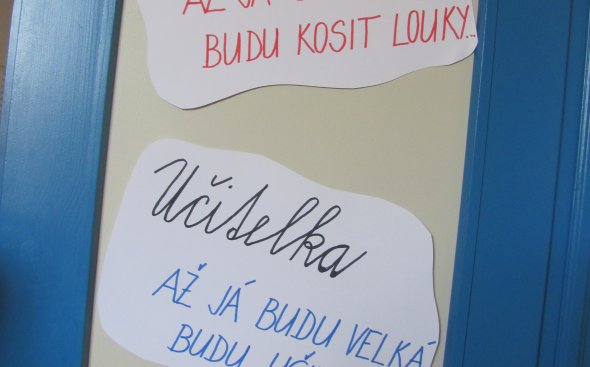 AŽ JÁ
BUDU KOSIT LOUKY...
Učitelka
AŽ JÁ BUDU VELKÁ
BUDU